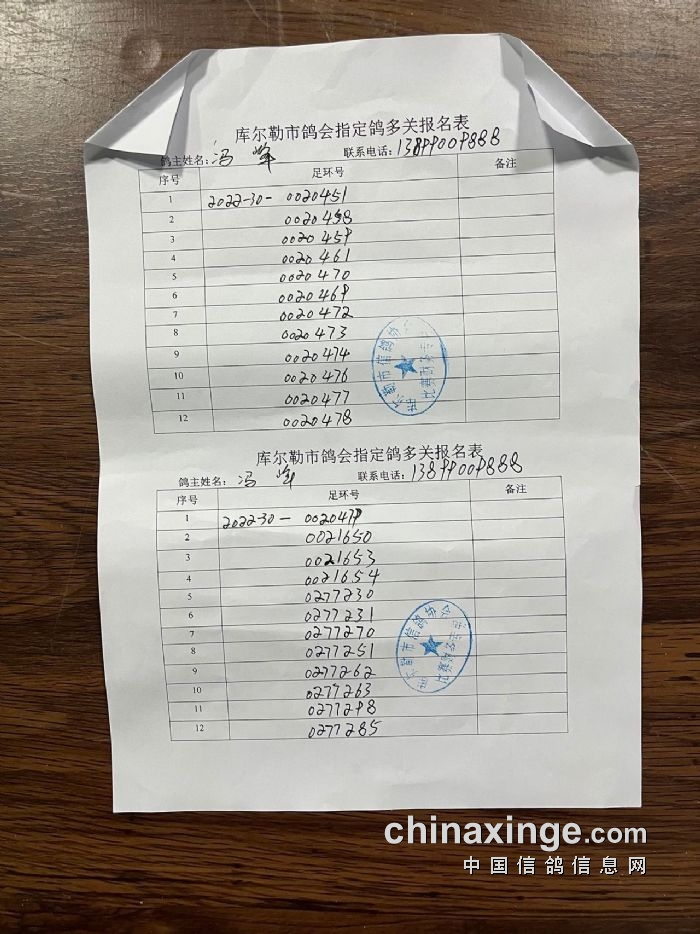 库尔勒市鸽会指定鸽多关报名表
鸽主姓名：冯峰 联系电话：13899009888
序号 足环号 备注
1 2022-30- 0020451
2 0020458
3 0020459
4 0020461
5 0020470
6 0020469
7 0020472
8 0020473
9 0020474
10 0020476
11 0020477
12 0020478
库尔勒市信鸽协会
库尔勒市鸽会指定鸽多关报名表
鸽主姓名：冯峰 联系电话：13899009888
序号 足环号 备注
1 2022-30- 0020479
2 0021650
3 0021653
4 0021654
5 0277230
6 0277231
7 0277270
8 0277251
9 0277262
10 0277263
11 0277298
12 0277285
库尔勒市信鸽协会
chinaxinge.com
中国信鸽信息网